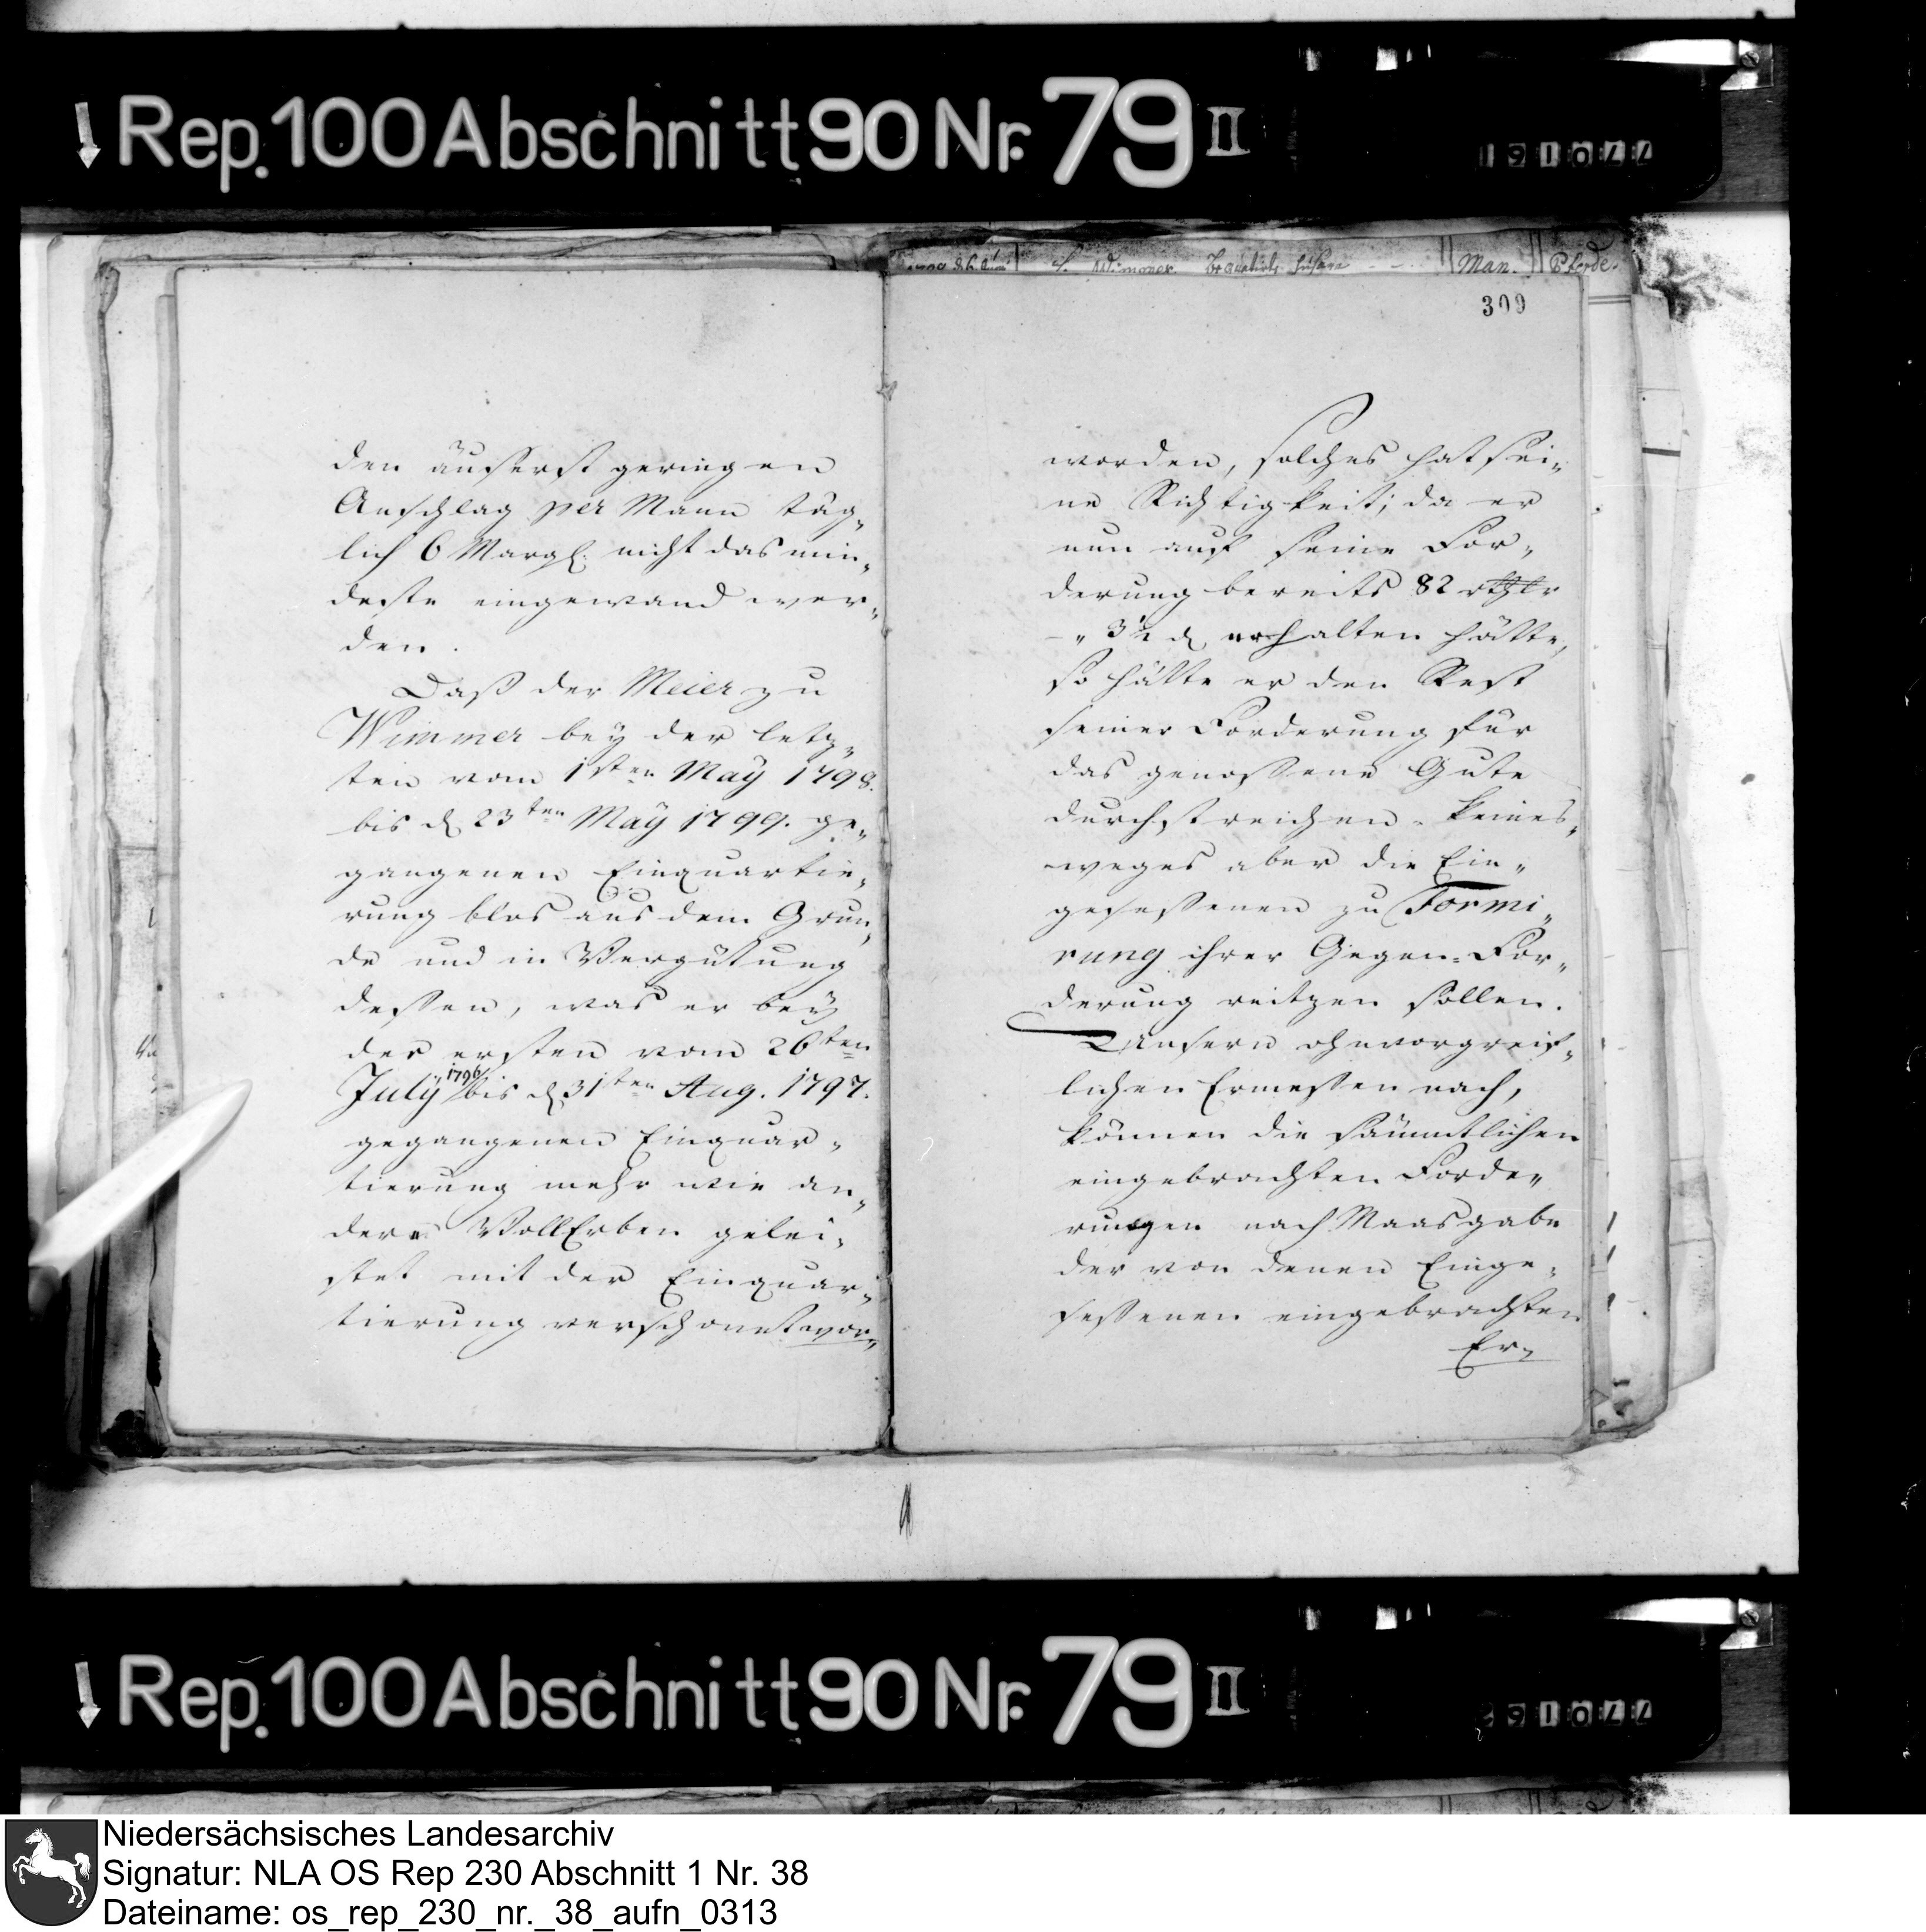 Rep. 100 Abschnitt 90 Nr. 79 II
Man. Pferde.
den äuserst geringen
Anschlag per Mann täg„
lich 6 Margl. nicht das min„
deste eingewand wer„
den.
Daß der Meier zu
Wimmer bey der letz„
ten vom 1sten May 1798.
bis d 23ten May 1799. ge„
gangenen Einquartie„
rung blos aus dem Grun„
de und in Vergütung
dessen, was er bey
der ersten vom 26ten
July 1796 bis d 31ten Aug. 1797.
gegangenen Einquar„
tierung mehr wie an„
dere VollErben gelei„
stet mit der Einquar„
tierung verschonet wor„
309
worden, solches hat sei„
ne Richtigkeit; da er
nun auf seine For„
derung bereits 82 rthlr
– „ 3½ d erhalten hätte,
so hätte er den Rest
seiner Forderung für
das genossene Gute
durchstreichen – keines„
weges aber die Ein„
gesessenen zu Formi„
rung ihrer Gegen=For„
derung reitzen sollen.
Unsern ohnvorgreif„
lichen Ermessen nach,
können die sämmtlichen
eingebrachten Forde„
rungen nach Maasgabe
der von denen Einge„
sessenen eingebrachten
Er„
Rep. 100 Abschnitt 90 Nr. 79 II
Niedersächsisches Landesarchiv
Signatur: NLA OS Rep 230 Abschnitt 1 Nr. 38
Dateiname: os_rep_230_nr._38_aufn_0313